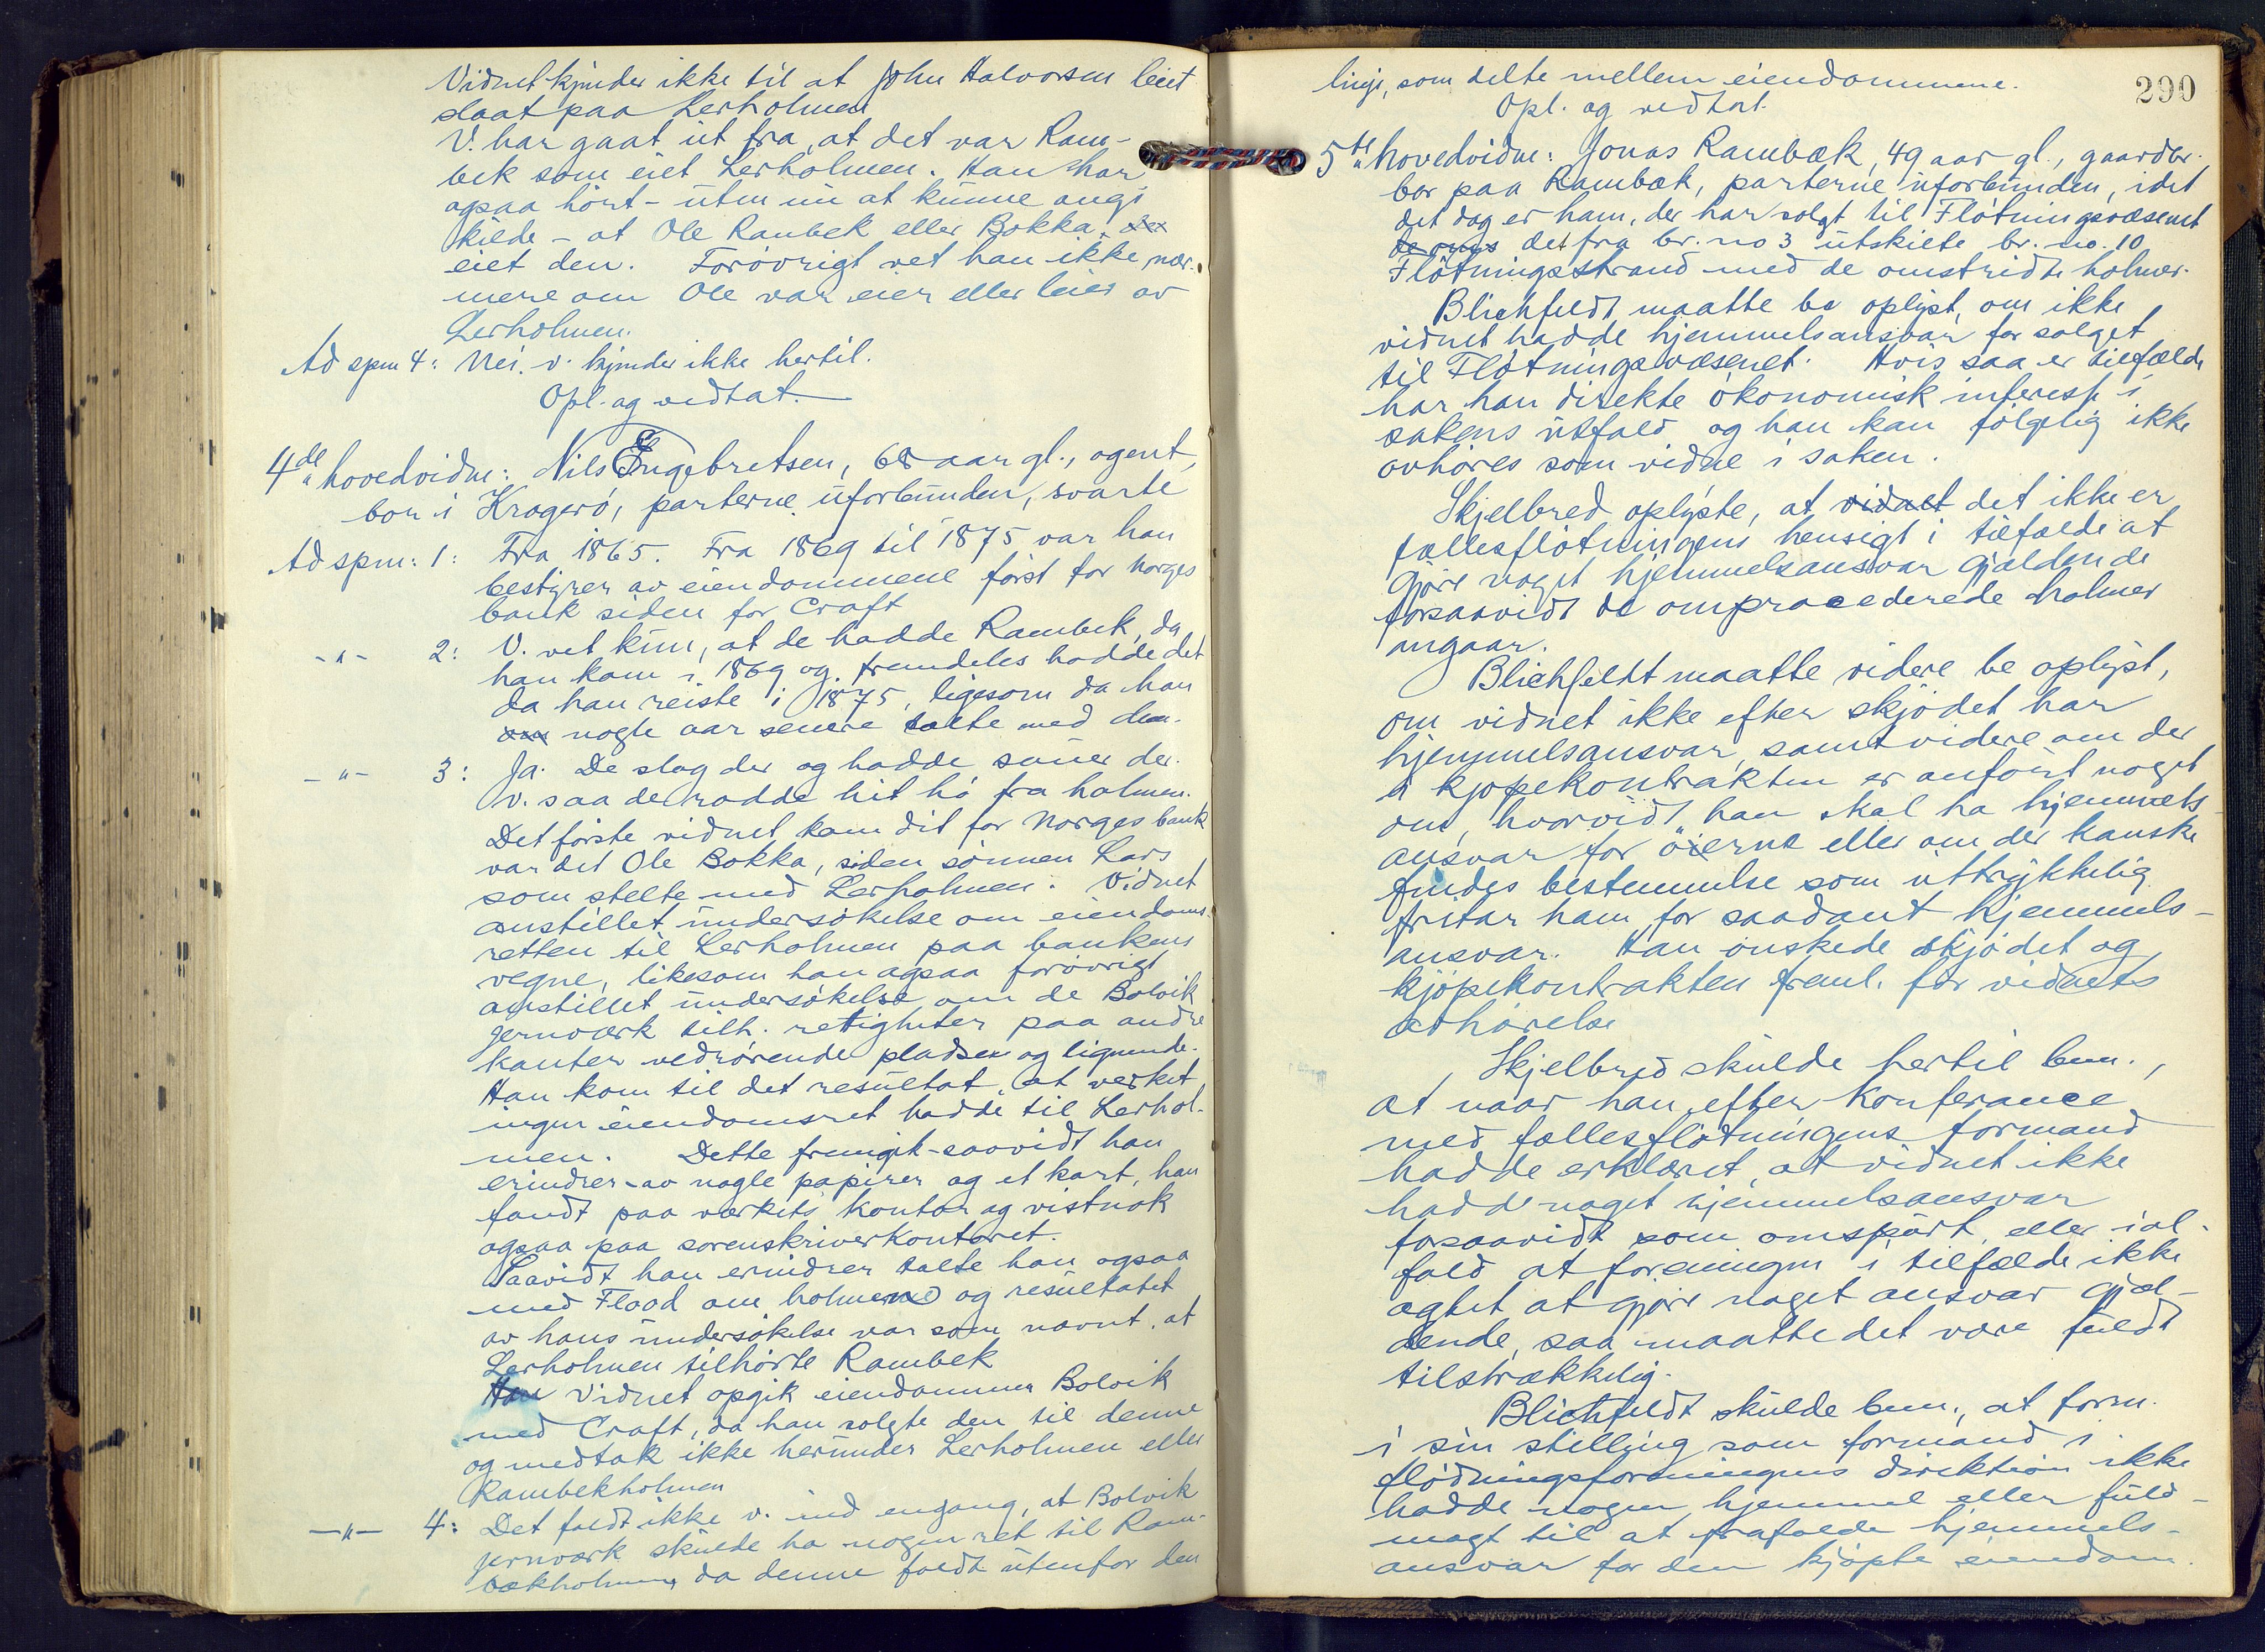 Vidnet kjender ikke til at John Halvorsen leiet
slaat paa Lerholmen
V. har gaat ut fra, at det var Ram-
bek som eiet Lerholmen. Han har
ogsaa hört - uten nu at kunne angi
kilde - at Ole Rambek eller Bokka
eiet den. Forövrigt vet han ikke nær-
mere om Ole var eier eller leier av
Lerholmen.
Ad spm 4: Nei. v. kjender ikke hertil.
Opl. og vedtat.
4de hovedvidne: Nils Engebretsen, 68 aar gl., agent,
bor i Kragerö, parterne uforbunden, svarte
Ad spm: 1: Fra 1865. Fra 1869 til 1875 var han
bestyrer av eiendommene först for Norges
bank siden for Craft
-"- 2: V. vet kun, at de hadde Rambek, da
han kom i 1869 og fremdeles hadde det
da han reiste i 1875, ligesom da han
om nogle aar senere talte med dem.
-"- 3: Ja. De slog der og hadde sauer der.
V. saa de rodde hit hö fra holmen.
Det förste vidnet kom dit for Norges bank
var det Ole Bokka, siden sönnen Lars
som stelte med Lerholmen. Vidnet
anstillet undersökelse om eiendoms-
retten til Lerholmen paa bankens
vegne, likesom han ogsaa forövrigt
anstillet undersökelse om de Bolvik
jernværk tilh. rettigheter paa andre
kanter vedrörende pladser og lignende.
Han kom til det resultat, at verket
ingen eiendomsret hadde til Lerhol-
men. Dette fremgik - saavidt han
erindrer - av nogle papirer og et kart, han
fandt paa værkets kontor og vistnok
ogsaa paa sorenskriverkontoret.
Saavidt han erindrer talte han ogsaa
med Flood om holmene og resultatet
av hans undersökelse var som nævnt, at
Lerholmen tilhörte Rambek
Han Vidnet opgik eiendommen Bolvik
med Craft, da han solgte den til denne
og medtok ikke herunder Lerholmen eller
Rambekholmen
-"- 4: Det faldt ikke v. ind engang, at Bolvik
jernværk skulde ha nogen ret til Ram-
bækholmen, da denne faldt utenfor den
290
linje, som delte mellem eiendommene.
Opl. og vedtat.
5te hovedvidne: Jonas Rambæk, 49 aar gl., gaardbr.
bor paa Rambæk, parterne uforbunden, idet
det dog er ham, der har solgt til Flötningsvæsenet
det fra br. no 3 utskilte br. no. 10
Flötningsstrand med de omstridte holmer.
Blichfeldt maatte be oplyst, om ikke
vidnet hadde hjemmelsansvar for salget
til Flötningsvæsenet. Hvis saa er tilfælde
har han direkte ökonomisk interesse i
sakens utfald og han kan fölgelig ikke
avhöres som vidne i saken.
Skjelbred oplyste, at vidnet det ikke er
fællesflötningens hensigt i tilfælde at
gjöre noget hjemmelsansvar gjældende
forsaavidt de omprocederede holmer
angaar.
Blichfeldt maatte videre be oplyst,
om vidnet ikke efter skjödet har
hjemmelsansvar, samt videre om der
i kjöpekontrakten er anfört noget
om, hvorvidt han skal ha hjemmels-
ansvar for öierne eller om der kanske
findes bestemmelse som uttrykkelig
fritar ham for saadant hjemmels-
ansvar. Han önskede skjödet og
kjöpekontrakten freml. för vidnets
avhörelse
Skjelbred skulde hertil bem.,
at naar han efter konferance
med fællesflötningens formand
hadde erklæret, at vidnet ikke
hadde noget hjemmelsansvar
forsaavidt som omspurt, eller ial-
fald at foreningen i tilfælde ikke
agtet at gjöre noget ansvar gjæl-
dende, saa maatte det være fuldt
tilstrækkelig.
Blichfeldt skulde bem., at form.
i sin stilling som formand i
flödningsforeningens direktion ikke
hadde nogen hjemmel eller fuld-
magt til at frafalde hjemmels-
ansvar for den kjöpte eiendom.